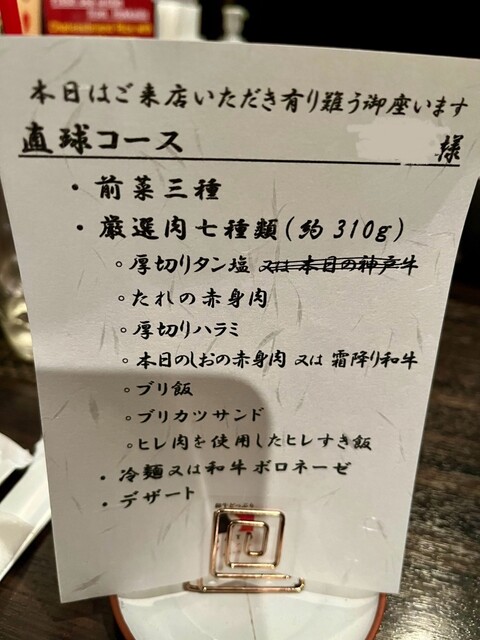 本日はご来店いただき有り難う御座います
直球コース 様
・前菜三種
・厳選肉七種類(約310g)
○厚切りタン塩 又は本日の神戸牛
○たれの赤身肉
○厚切りハラミ
○本日のしおの赤身肉 又は 霜降り和牛
○ブリ飯
○ブリカツサンド
○ヒレ肉を使用したヒレすき飯
・冷麺又は和牛ボロネーゼ
・デザート